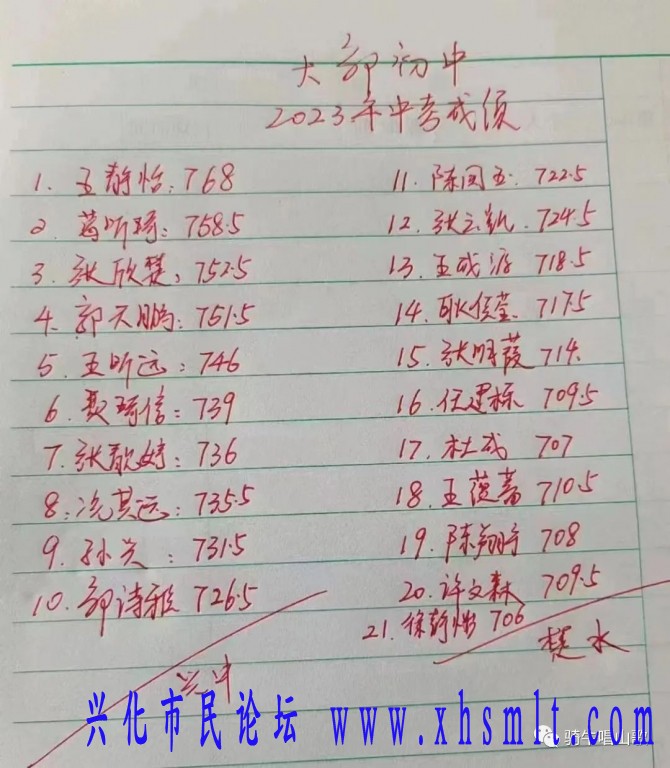 大郭初中
2023年中考成绩
1. 王静怡: 768
2. 葛昕琦: 758.5
3. 张欣楚: 752.5
4. 郭天鹏: 751.5
5. 王昕远: 746
6. 聂琦信: 739
7. 张歆婷: 736
8: 冼其远: 735.5
9. 孙兴: 731.5
10. 郭诗雅 726.5
兴中
11. 陈国玉: 722.5
12. 张立凯. 724.5
13. 王成源 718.5
14. 耿俊莹. 717.5
15. 张明霞 714.
16. 任建栋 709.5
17. 杜成 707
18. 王蓓蕾 710.5
19. 陈翔宇 708
20. 许文森 709.5
21. 徐静怡 706
楚水
兴化市民论坛 www.xhsmlt.com
骑牛唱山歌